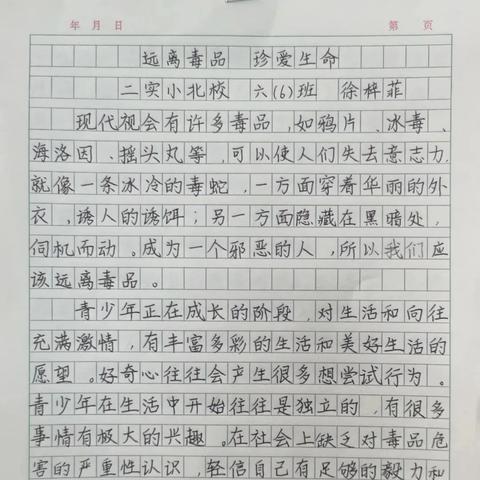 年 月 日 第 页
远离毒品 珍爱生命
二实小北校 六(6)班 徐梓菲
现代视会有许多毒品,如鸦片、冰毒、
海洛因、摇头丸等,可以使人们失去意志力,
就像一条冰冷的毒蛇,一方面穿着华丽的外
衣、诱人的诱饵;另一方面隐藏在黑暗处,
伺机而动。成为一个邪恶的人,所以我们应
该远离毒品。
青少年正在成长的阶段,对生活和向往
充满激情,有丰富多彩的生活和美好生活的
愿望。好奇心往往会产生很多想尝试行为。
青少年在生活中开始往往是独立的,有很多
事情有极大的兴趣。在社会上缺乏对毒品危
害的严重性认识,轻信自己有足够的毅力和